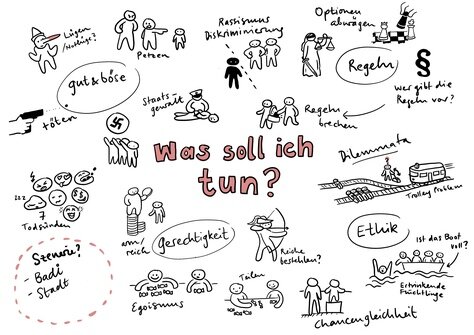 Lügen
/Notlüge?
Petzen
Rassismus
Diskriminierung
Optionen
abwägen
gut & böse
Regeln
§
Wer gibt die
Regeln vor?
Staats-
gewalt
Regeln
brechen
töten
Was soll ich
tun?
Dilemmata
?
Trolley Problem
zzz
7
Todsünden
arm/
reich
gerechtigkeit
Reiche
bestehlen?
Ethik
Ist das Boot
voll?
Ertrinkende
Flüchtlinge
Szenario?
- Badi
- Stadt
Egoismus
Teilen
Chancengleichheit